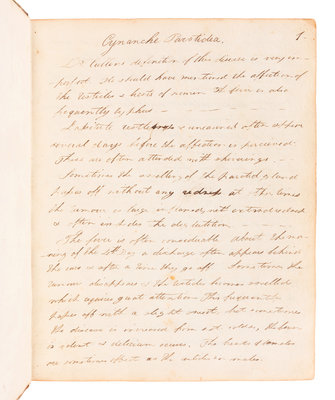 Cynanche Parotidea. 1.
Dr Cullens definition of this disease is very im-
perfect. He should have mentioned the affection of
the testicles & breasts of women The fever is also
frequently typhus —
Lassitude restlessness & uneasiness often appear
several days before the affection is perceived.
These are often attended with shiverings. —
Sometimes the swelling of the parotid gland
passes off without any redness at other times
the tumour is large inflamed, with
is often
The fever is often considerable about the mor-
ning of the 4th day a discharge often appears behind
the ears & after a time they go off. Sometimes the
tumour disappears & the testicles become swelled
which requires great attention This frequently
passes off with a slight sweat but sometimes
the disease is from cold, the fever
is violent & delirium occurs. The breasts of females
are sometimes affected as the testicles in males.